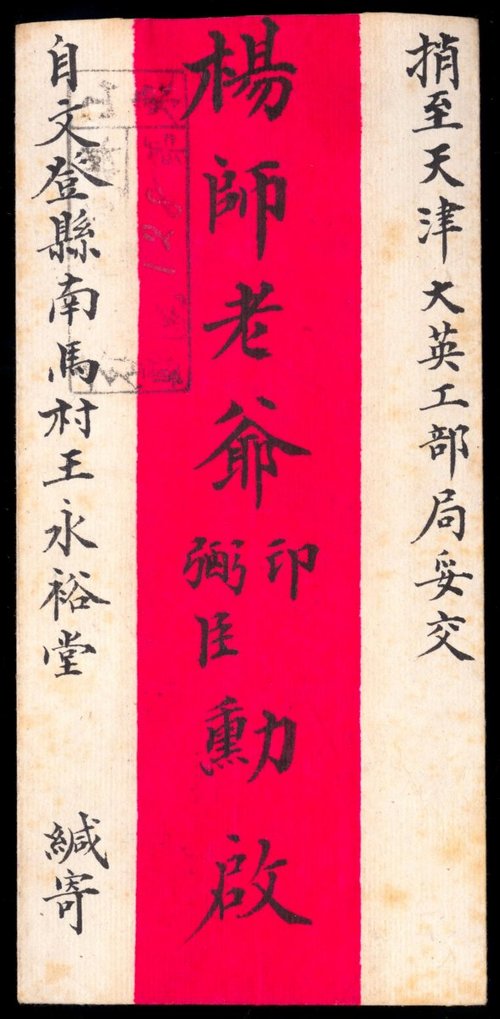 捎至天津大英工部局妥交
楊師老爺印弼臣勳啟
自文登縣南馬村王永裕堂 緘寄